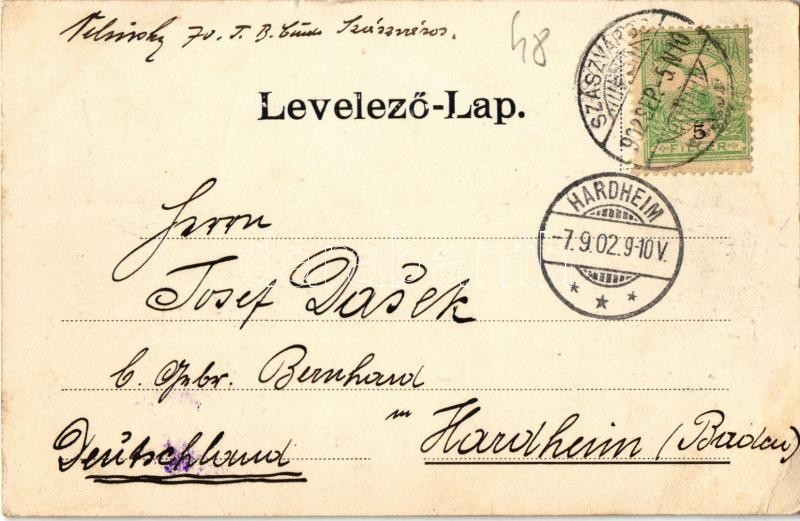 48
Szászváros.
Levelező-Lap.
SZÁSZVÁROS
902 SEP. 5
5
FILLÉR
HARDHEIM
-7.9.02.9-10V.
Herrn
Josef Dašek
b. Gebr. Bernhard
in Hardheim (Baden)
Deutschland